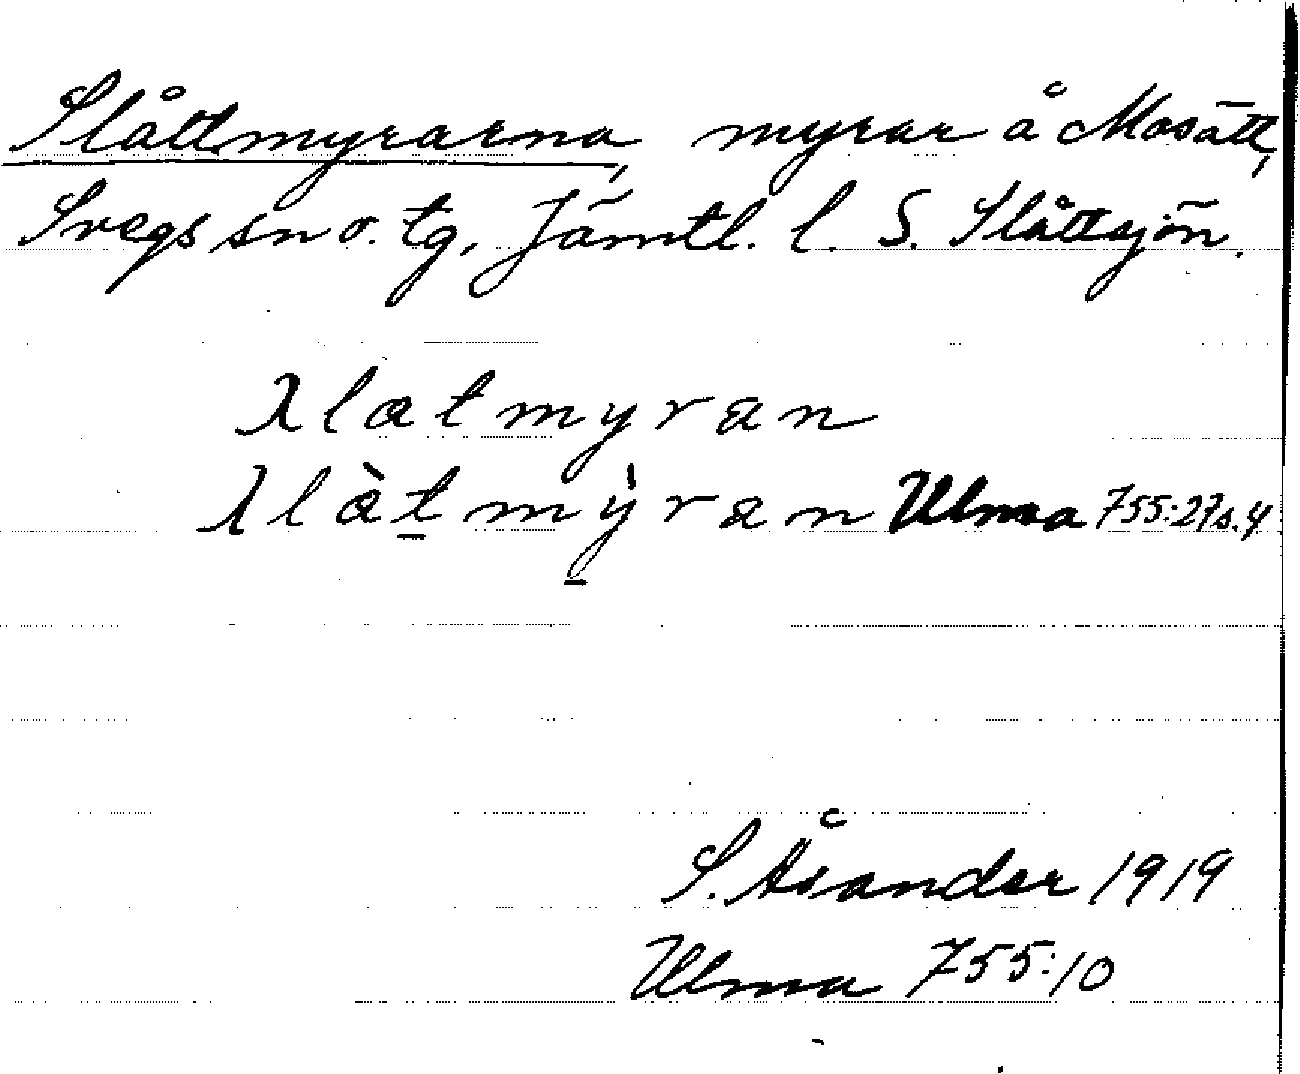 Slåttmyrarna, myrar å Mosätt,
Svegs sn o. tg, Jämtl. l. S. Slåttsjön.
λlatmyran
λlàt̲mỳ̲ran Ulma 755:27 s. 4
S. Åsander 1919
Ulma 755:10